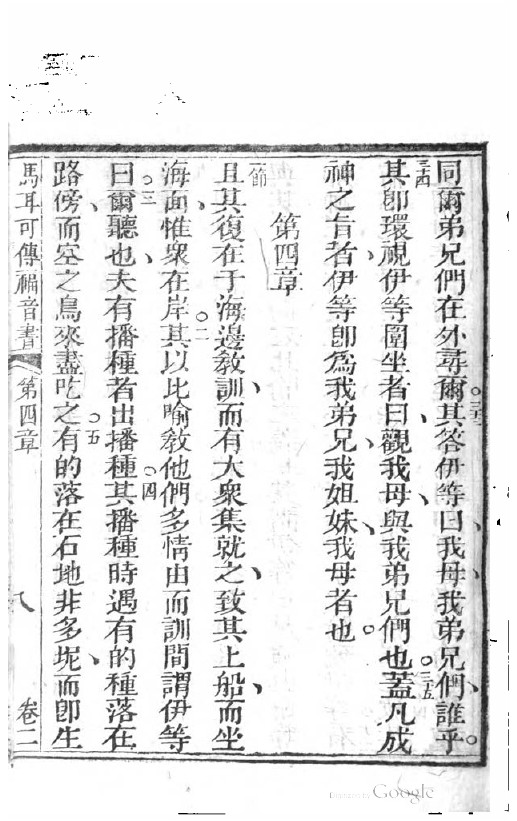 同爾弟兄們在外尋爾。三三其答伊等曰、我母、我弟兄們、誰乎。
三四其卽環視伊等圍坐者曰、觀我母、與我弟兄們也。三五蓋凡成
神之旨者、伊等卽爲我弟兄、我姐妹、我母者也。
第四章
一節且其復在于海邊敎訓、而有大衆集就之、致其上船、而坐
海面、惟衆在岸。二其以比喻敎他們多情由、而訓間謂伊等
曰、三爾聽也、夫有播種者出播種。四其播種時、遇有的種落在
路傍、而空之鳥來盡吃之。五有的落在石地非多坭、而卽生
馬耳可傳福音書 第四章 八 卷二
Digitized by Google